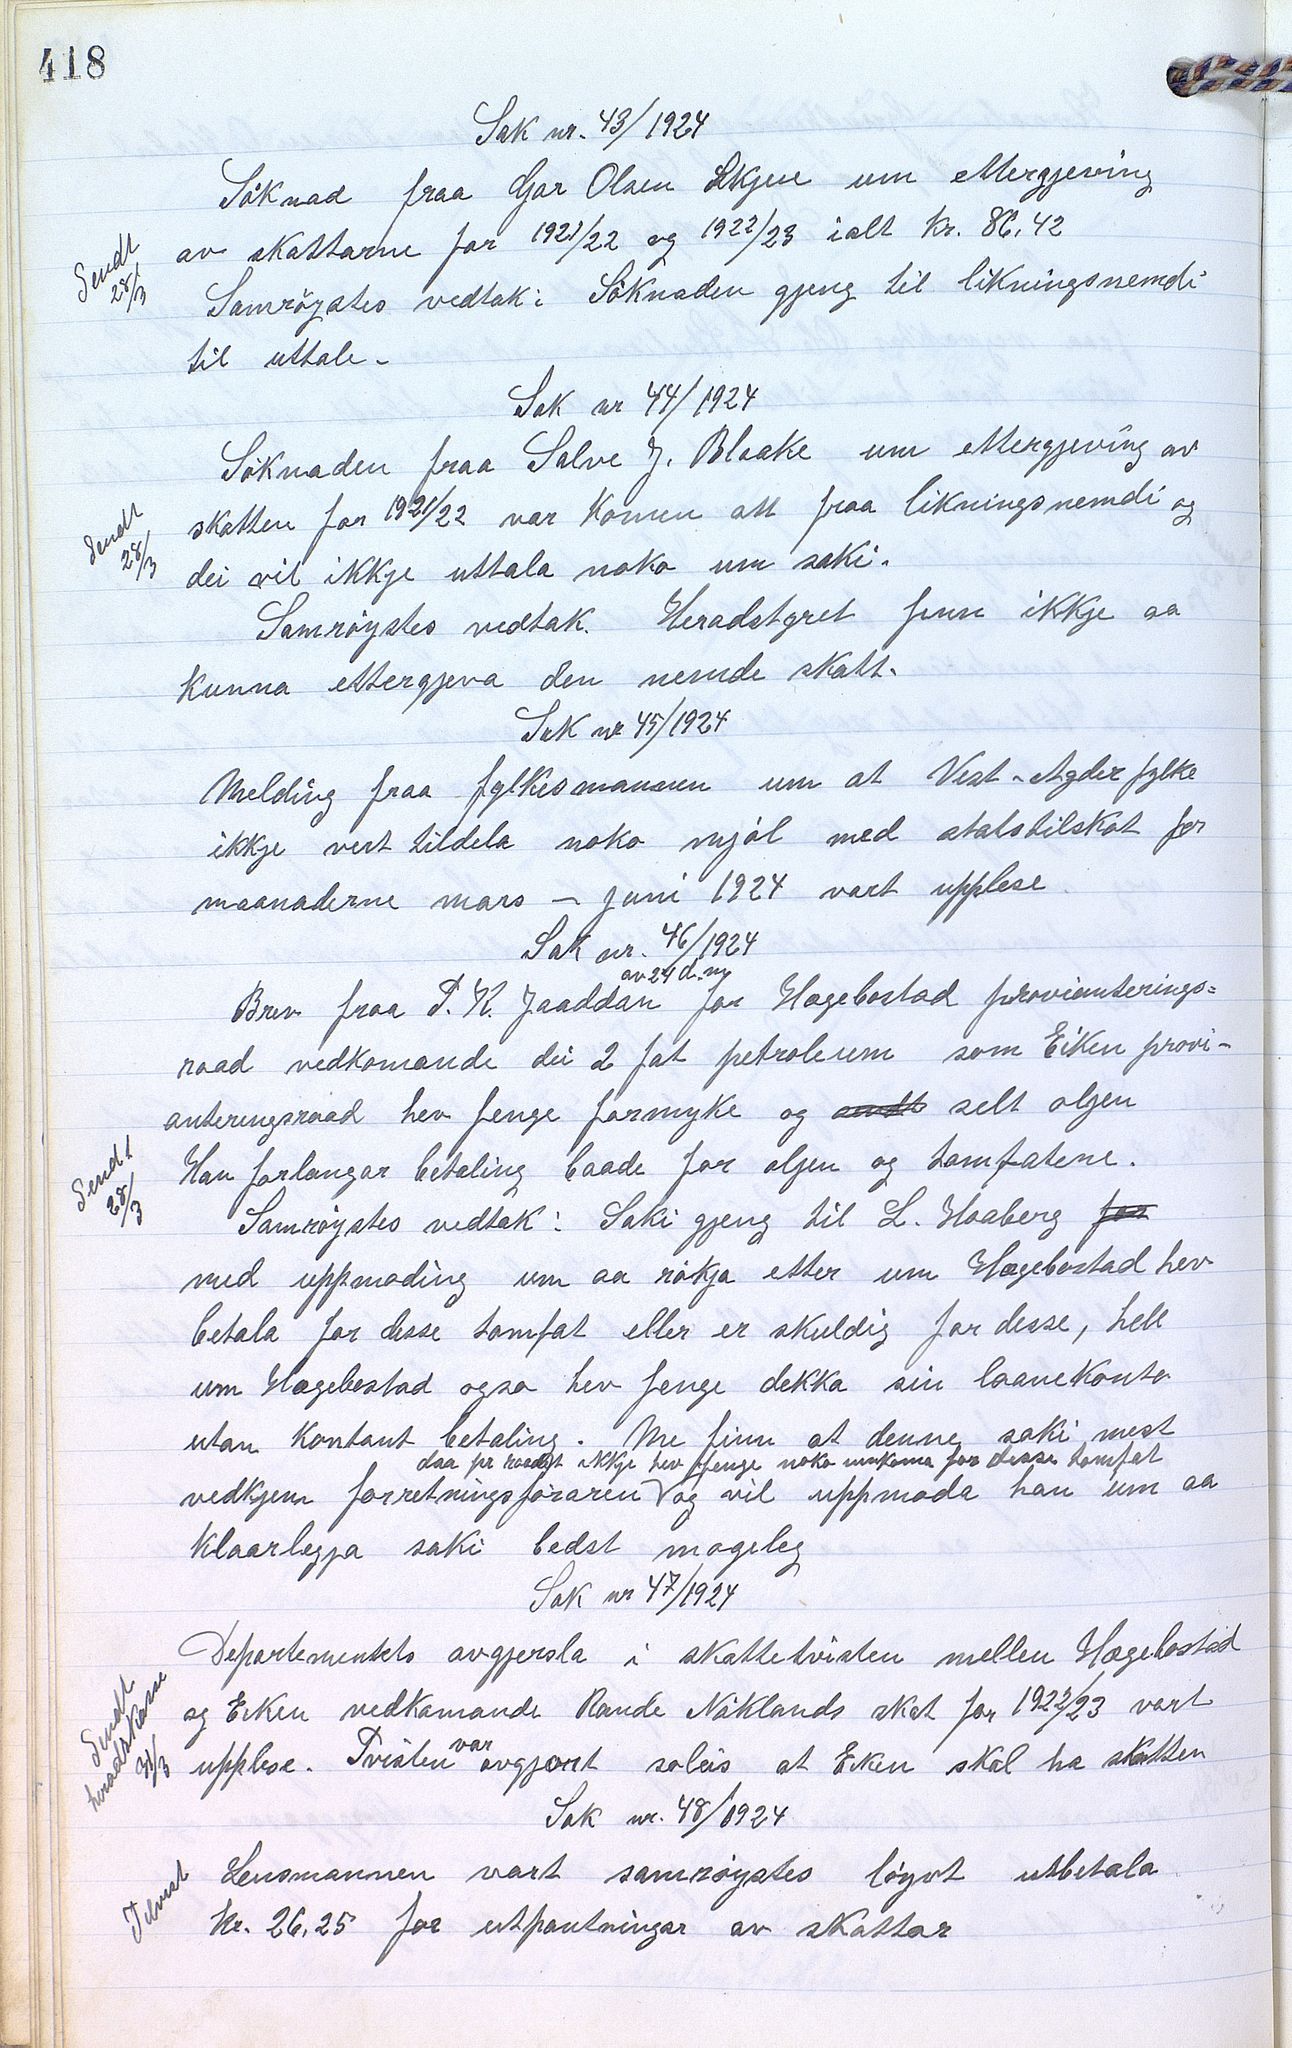 418
Sak nr. 43/1924
Söknad fraa Gar Olsen Skjeie um ettergjeving
av skattarne for 1921/22 og 1922/23 ialt Kr. 86,42
Sendt
28/3
Samröystes vedtak: Söknaden gjeng til likningsnemdi
til uttale -
Sak nr 44/1924
Söknaden fraa Salve J. Blaake um ettergjeving av
skatten for 1921/22 var komen att fraa likningsnemdi og
Sendt
28/3
dei vil ikkje uttala noko um saki.
Samröystes vedtak. Heradstyret finn ikkje aa
kunna ettergjeva den nemde skatt.
Sak nr 45/1924
Melding fraa fylkesmannen um at Vest-Agder fylke
ikkje vert tildela noko mjöl med statstilskot for
maanaderne mars - juni 1924 vart upplese
Sak nr. 46/1924
av 24 d.m
Brev fraa T. K. Jaaddan for Hægebostad provianterings=
raad vedkomande dei 2 fat petroleum som Eiken provi-
anteringsraad hev fenge formyke og sendt selt oljen
Han forlangar betaling baade for oljen og tomfatene.
Sendt
28/3
Samröystes vedtak: Saki gjeng til L. Haaberg for
med uppmoding um aa rökja etter um Hægebostad hev
betala for desse tomfat eller er skuldig for desse, helt
um Hægebostad ogso hev fenge dekka sin laanekonto
utan kontant betaling. Me finn at denne saki mest
daa pr raadet ikkje hev fenge noko innkoma for desse tomfat
vedkjem forretningsföraren og vil uppmoda han um aa
klaarleggja saki bedst mogeleg
Sak nr 47/1924
Departementets avgjersla i skattetvisten mellen Hægebostad
og Eiken vedkomande Rande Nöklands skat for 1922/23 vart
Sendt
heradskasse
31/3
var
upplese. Tvisten avgjort soleis at Eiken skal ha skatten
Sak nr. 48/1924
Tilvist
Lensmannen vart samröystes löyvt utbetala
kr. 26,25 for utpantningar av skattar